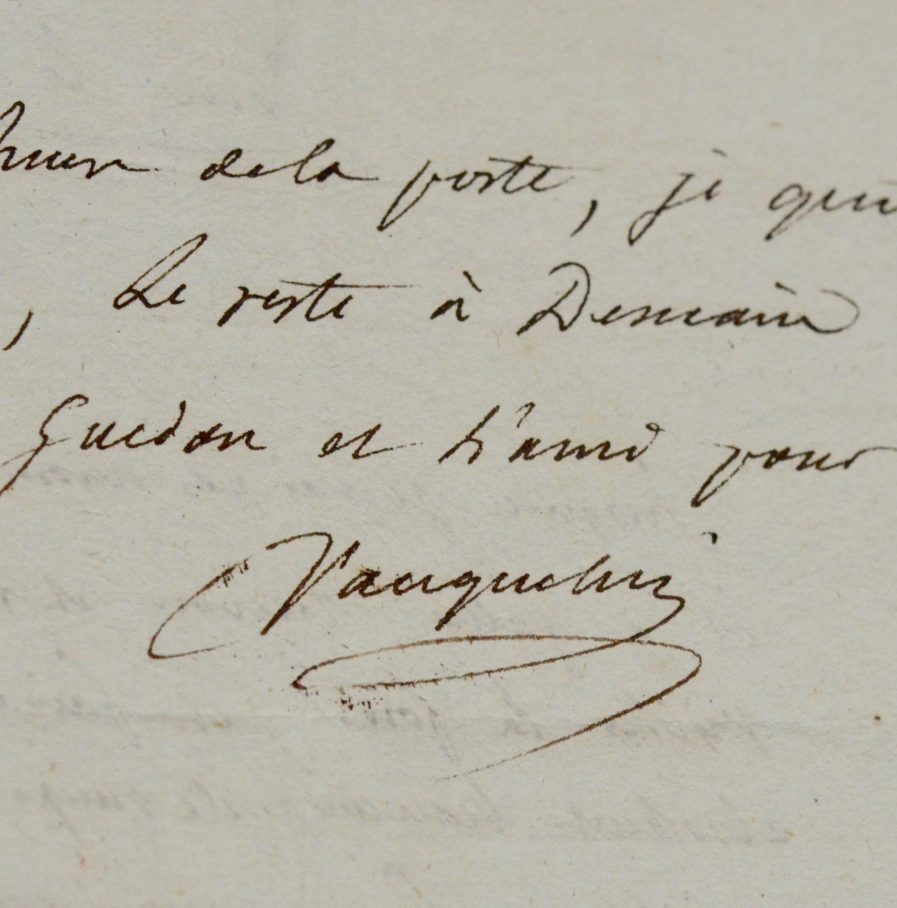 de la poste, je
, Le reste à Demain
Guedon et L'ami pour
Vauquelin